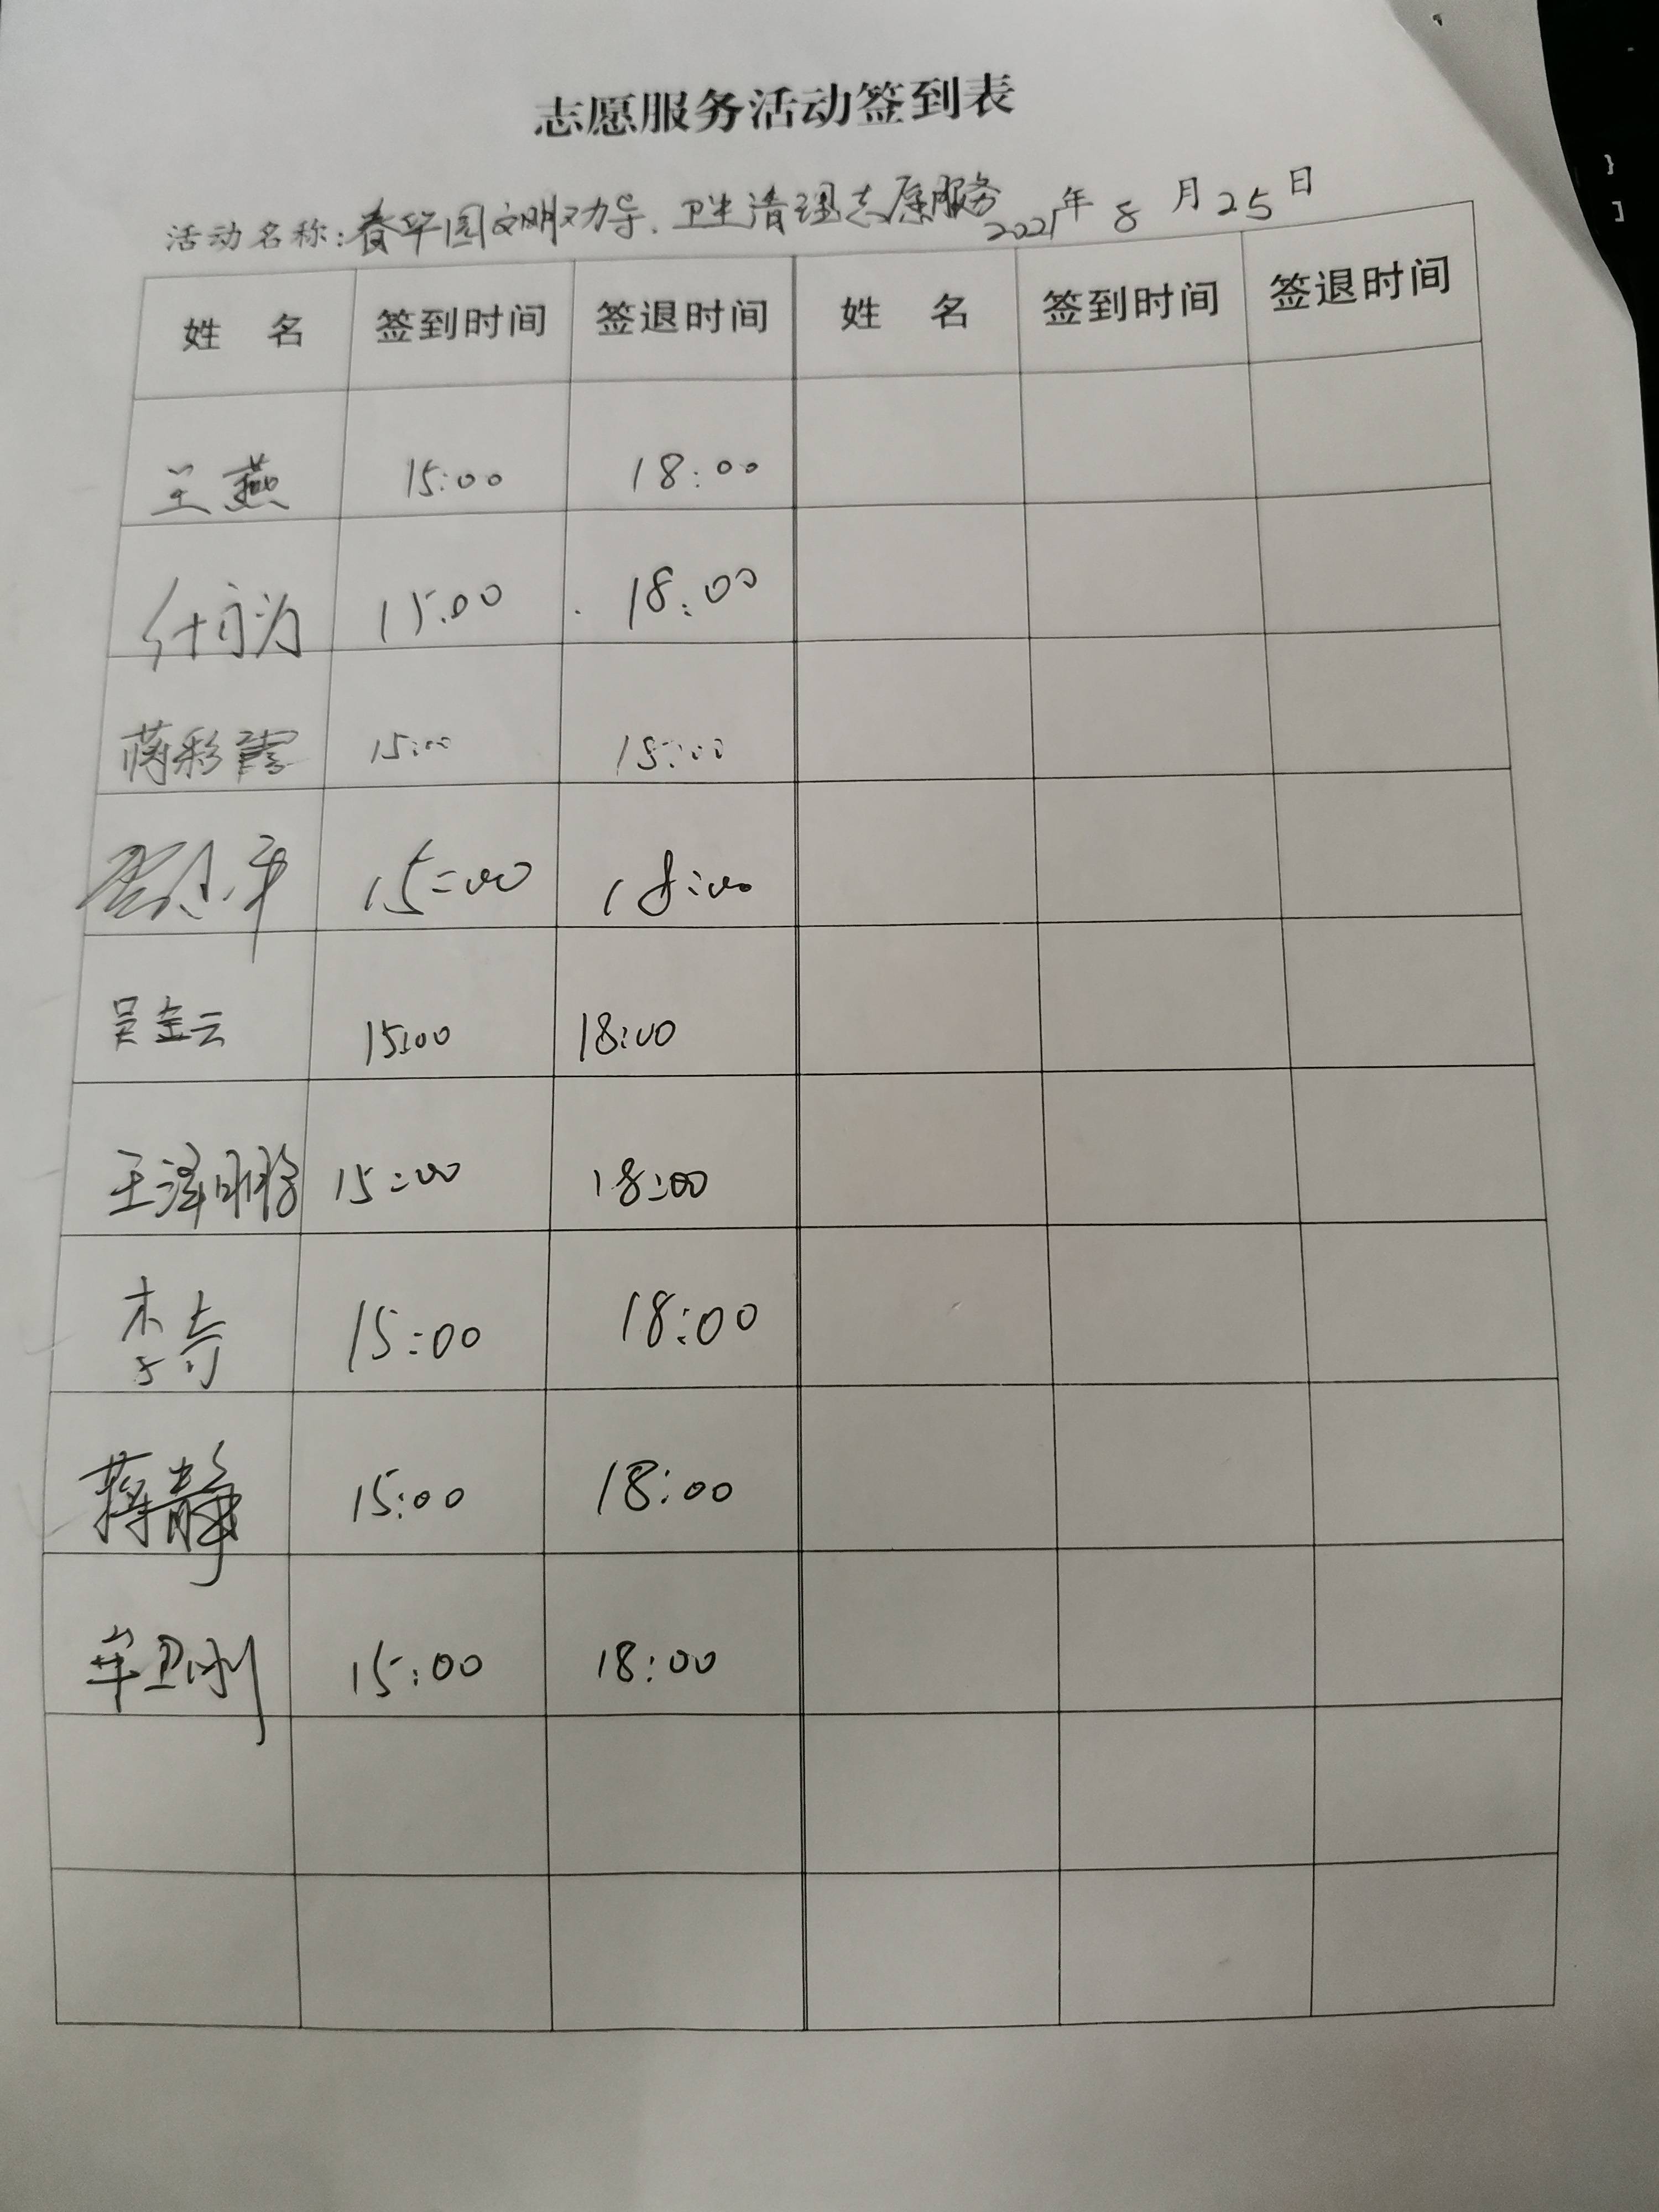 志愿服务活动签到表
活动名称:春华园文明劝导、卫生清理志愿服务 2021年8月25日
姓 名 签到时间 签退时间 姓 名 签到时间 签退时间
王燕 15:00 18:00
15:00 18:00
蒋彩霞 15:00 18:00
15:00 18:00
吴金云 15:00 18:00
王泽明 15:00 18:00
李奇 15:00 18:00
蒋静 15:00 18:00
牟卫刚 15:00 18:00
}
]